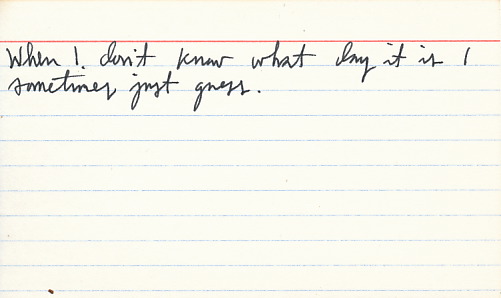 When I don't know what day it is I
sometimes just guess.